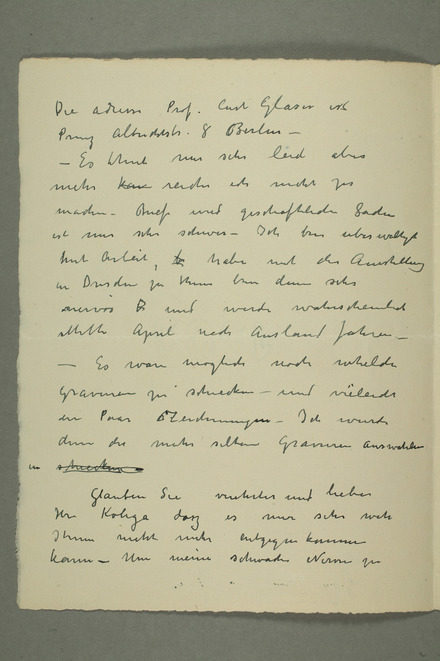 Die adresse Prof. Curt Glaser ist
Prinz Albrechtstr. 8 Berlin –
– Es thut mir sehr leid aber
mehr reicher ich nicht zu
machen – Briefe und geschäftliche Sachen
ist mir sehr schwer – Ich bin überwältigt
mit Arbeit, habe mit der Ausstellung
in Dresden zu thun bin dann sehr
nervös und werde wahrscheinlich
Mitte April nach Ausland fahren –
– Es wäre möglich noch
Gravuren zu schicken – und vielleicht
ein Paar Zeichnungen – Ich würde
dann die mehr seltene Gravuren auswählen
schicken –
Glauben Sie verehrter und lieber
Herr Kollege dasz es mir sehr
Ihnen nicht mehr entgegen kommen
kann – Um meine schwache Nerven zu